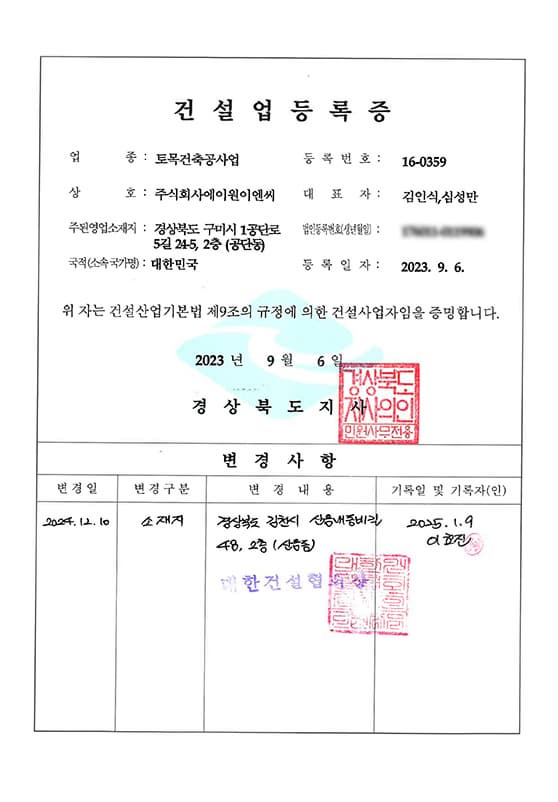 건설업등록증
업 종 : 토목건축공사업 등 록 번 호 : 16-0359
상 호 : 주식회사에이원이엔씨 대 표 자 : 김인식,심성만
주된영업소재지 : 경상북도 구미시 1공단로 법인등록번호(생년월일) :
5길 24-5, 2층 (공단동)
국적(소속국가명) : 대한민국 등 록 일 자 : 2023. 9. 6.
위 자는 건설산업기본법 제9조의 규정에 의한 건설사업자임을 증명합니다.
2023 년 9 월 6 일
경상북도지사
경상북도
지사의인
민원사무전용
변경사항
변경일 변경구분 변경내용 기록일 및 기록자(인)
2024.12.10 소재지 경상북도 김천시 2025.1.9
48, 2층 (신음동) 이호진
대한건설협회장